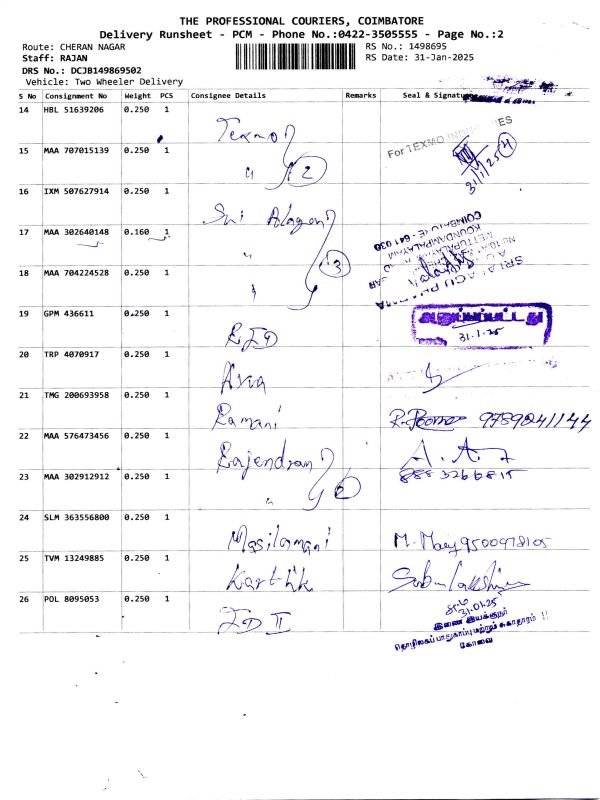 THE PROFESSIONAL COURIERS, COIMBATORE
Delivery Runsheet - PCM - Phone No.:0422-3505555 - Page No.:2
Route: CHERAN NAGAR
RS No.: 1498695
Staff: RAJAN
RS Date: 31-Jan-2025
DRS No.: DCJB149869502
Vehicle: Two Wheeler Delivery
S No Consignment No Weight PCS Consignee Details Remarks Seal & Signature
14 HBL 51639206 0.250 1 Texmo
For TEXMO INDUSTRIES
15 MAA 707015139 0.250 1 " 2
31/1/25 4
16 IXM 507627914 0.250 1 Sri Alagoni
17 MAA 302640148 0.160 1 " 3
COIMBATORE - 641 030
18 MAA 704224528 0.250 1 "
19 GPM 436611 0.250 1
31.1.25
20 TRP 4070917 0.250 1
21 TMG 200693958 0.250 1 Ramani 9789241144
22 MAA 576473456 0.250 1 Rajendran
23 MAA 302912912 0.250 1 " 2 8883266815
24 SLM 363556800 0.250 1 Masilamani M. 9500978105
25 TVM 13249885 0.250 1 Karthik
26 POL 8095053 0.250 1
31.01.25
இணை இயக்குநர்
தொழிலகப் பாதுகாப்பு மற்றும் சுகாதாரம் II
கோவை